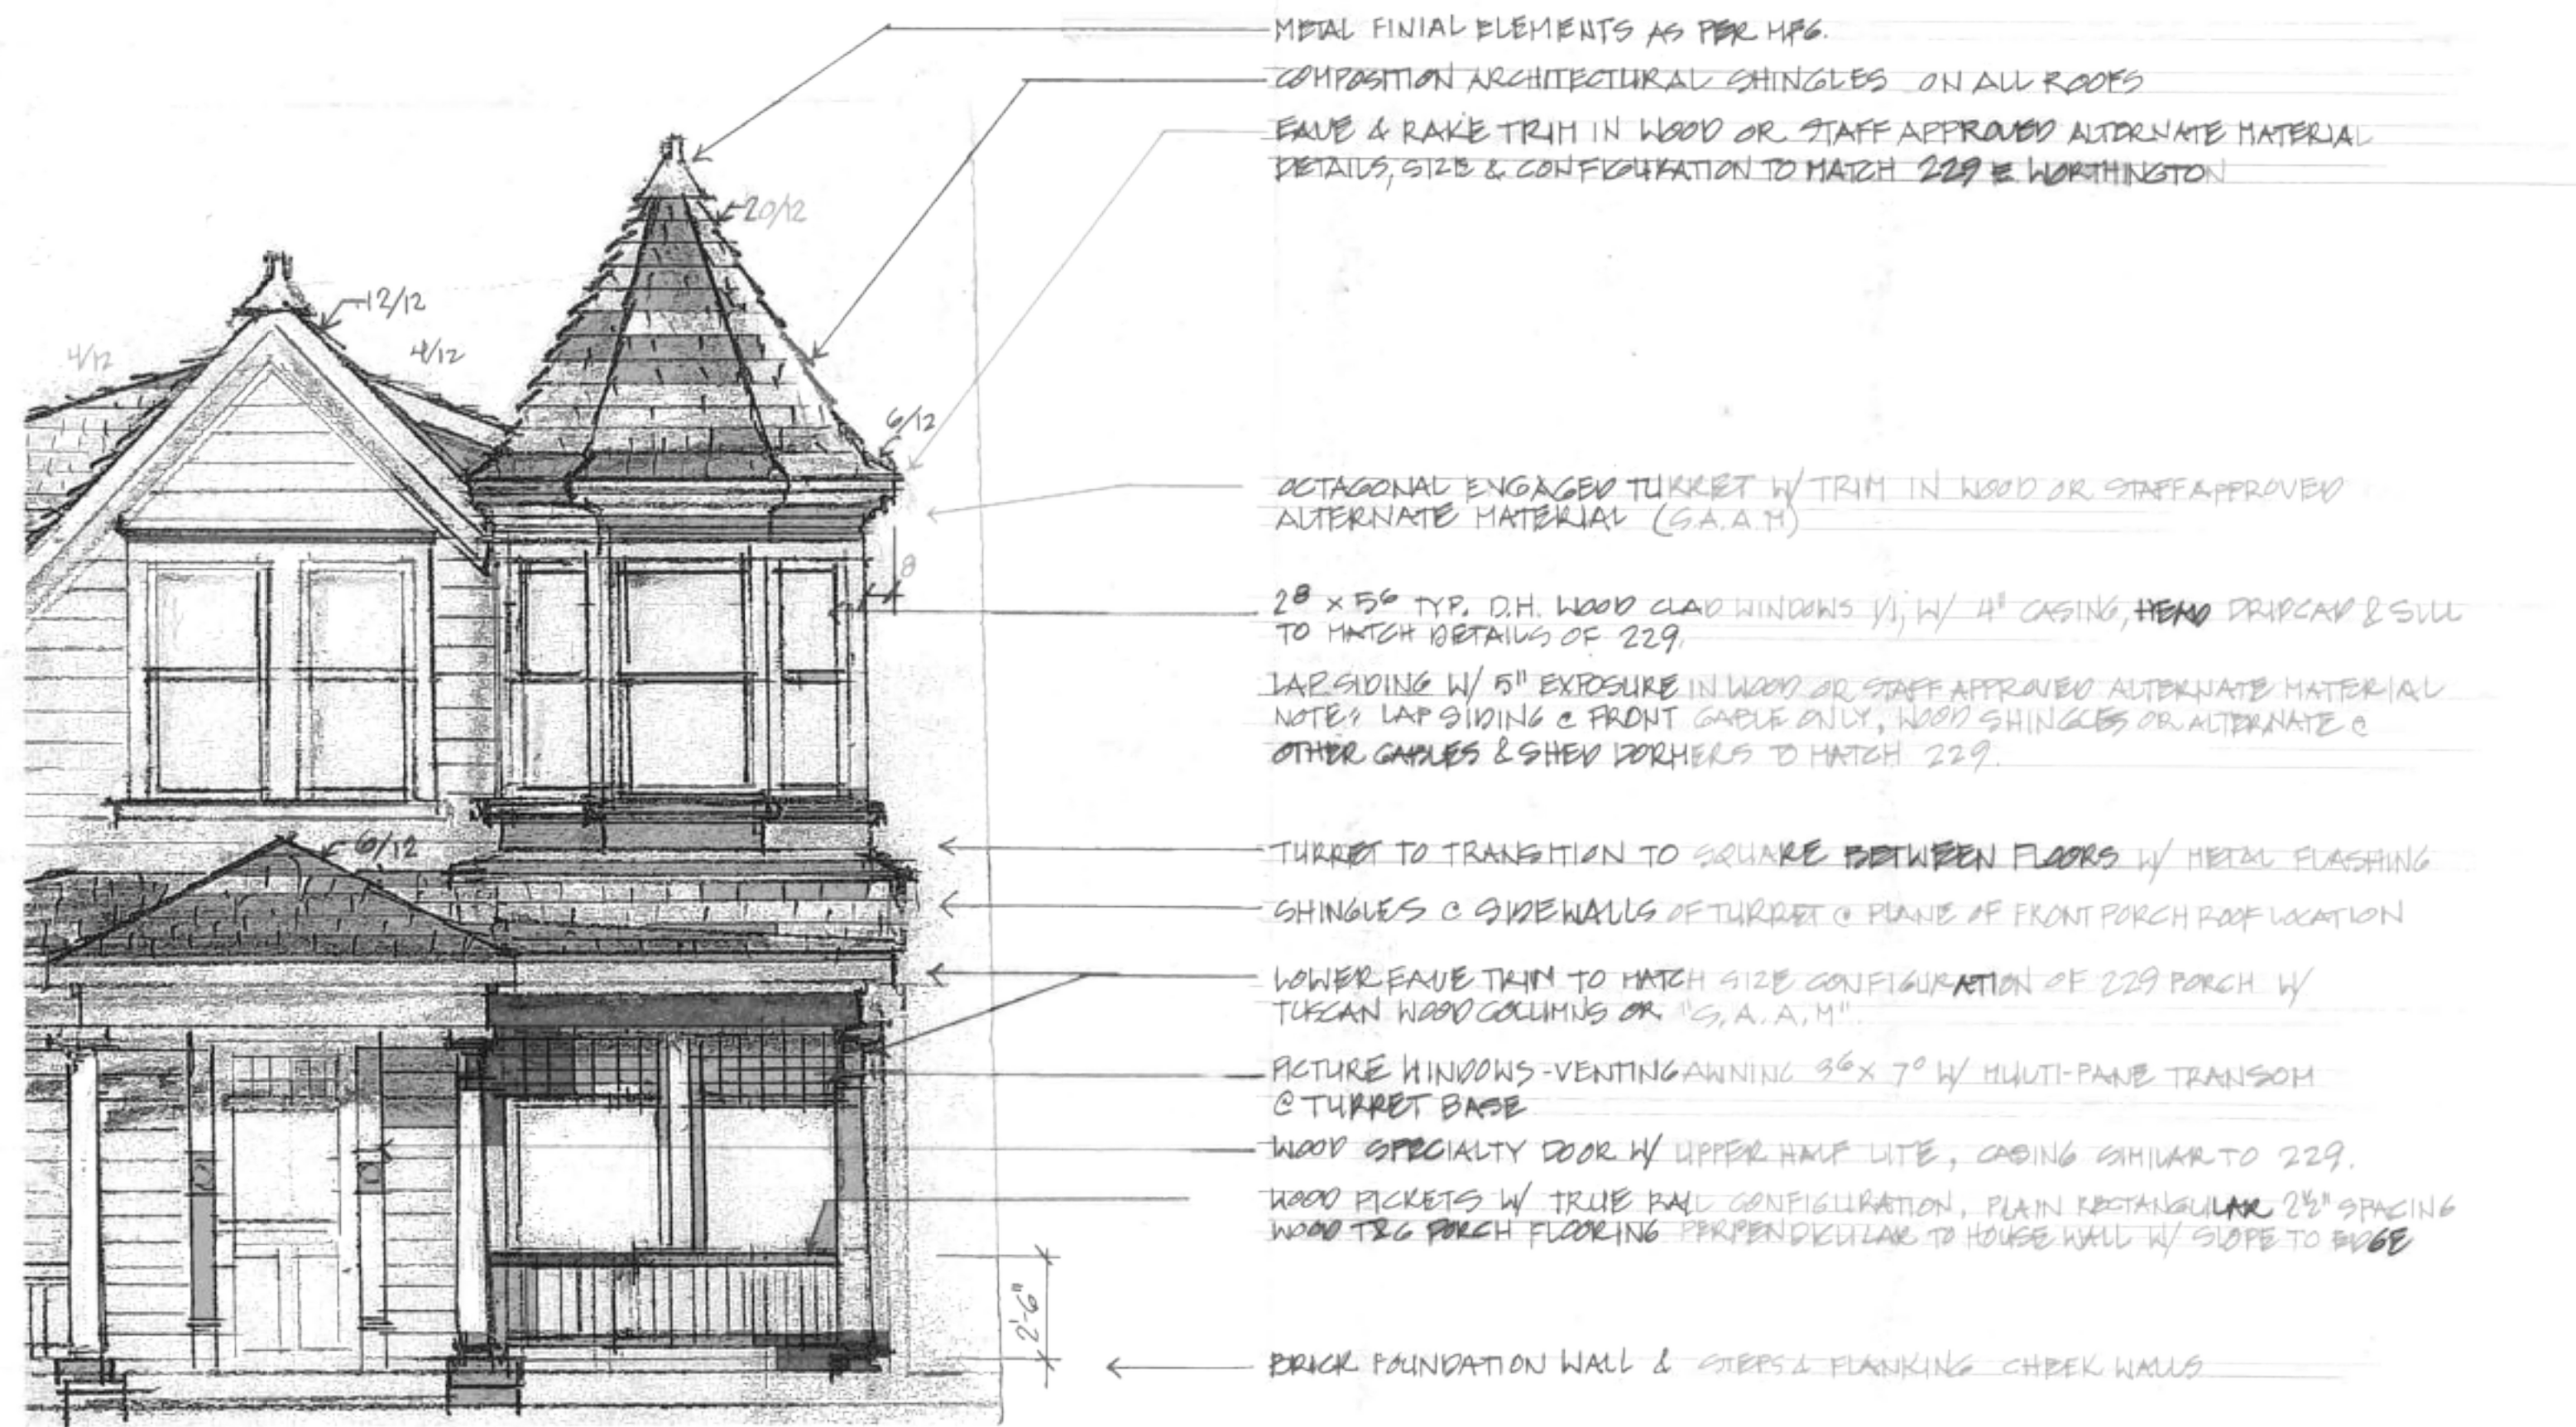 METAL FINIAL ELEMENTS AS PER MFG.
COMPOSITION ARCHITECTURAL SHINGLES ON ALL ROOFS
EAVE & RAKE TRIM IN WOOD OR STAFF APPROVED ALTERNATE MATERIAL
DETAILS, SIZE & CONFIGURATION TO MATCH 229 E WORTHINGTON
20/12
12/12
4/12
4/12
6/12
OCTAGONAL ENGAGED TURRET W/ TRIM IN WOOD OR STAFF APPROVED
ALTERNATE MATERIAL (S.A.A.M)
8
2⁸ x 5⁶ TYP. D.H. WOOD CLAD WINDOWS 1/1, W/ 4" CASING, HEAD DRIPCAP & SILL
TO MATCH DETAILS OF 229.
LAP SIDING W/ 5" EXPOSURE IN WOOD OR STAFF APPROVED ALTERNATE MATERIAL
NOTE: LAP SIDING @ FRONT GABLE ONLY, WOOD SHINGLES OR ALTERNATE @
OTHER GABLES & SHED DORMERS TO MATCH 229.
6/12
TURRET TO TRANSITION TO SQUARE BETWEEN FLOORS W/ METAL FLASHING
SHINGLES @ SIDEWALLS OF TURRET @ PLANE OF FRONT PORCH ROOF LOCATION
LOWER EAVE TRIM TO MATCH SIZE CONFIGURATION OF 229 PORCH W/
TUSCAN WOOD COLUMNS OR "S.A.A.M"
PICTURE WINDOWS-VENTING AWNING 3⁶ x 7⁰ W/ MULTI-PANE TRANSOM
@ TURRET BASE
WOOD SPECIALTY DOOR W/ UPPER HALF LITE, CASING SIMILAR TO 229.
WOOD PICKETS W/ TRUE RAIL CONFIGURATION, PLAIN RECTANGULAR 2½" SPACING
WOOD T&G PORCH FLOORING PERPENDICULAR TO HOUSE WALL W/ SLOPE TO EDGE
2'-6"
BRICK FOUNDATION WALL & STEPS & FLANKING CHEEK WALLS